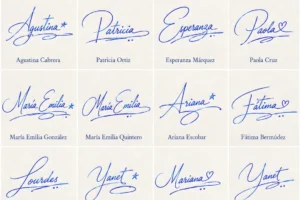 Agustina
Patricia
Esperanza
Paola
Agustina Cabrera
Patricia Ortiz
Esperanza Márquez
Paola Cruz
María Emilia
María Emilia
Ariana
Fátima
María Emilia González
María Emilia Quintero
Ariana Escobar
Fátima Bermúdez
Lourdes
Yanet
Mariana
Yanet